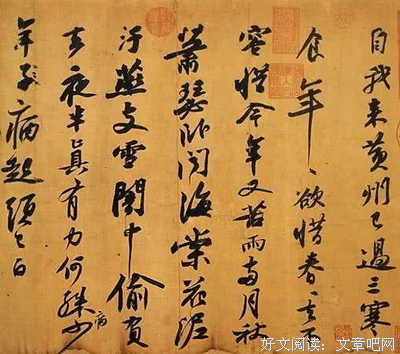 自我來黃州已過三寒
食年〻欲惜春〻去不
容惜今年又苦雨兩月秋
蕭瑟卧聞海棠花泥
汙燕支雪闇中偷負
去夜半真有力何殊少
病
年子病起頭已白
好文阅读:文章吧网